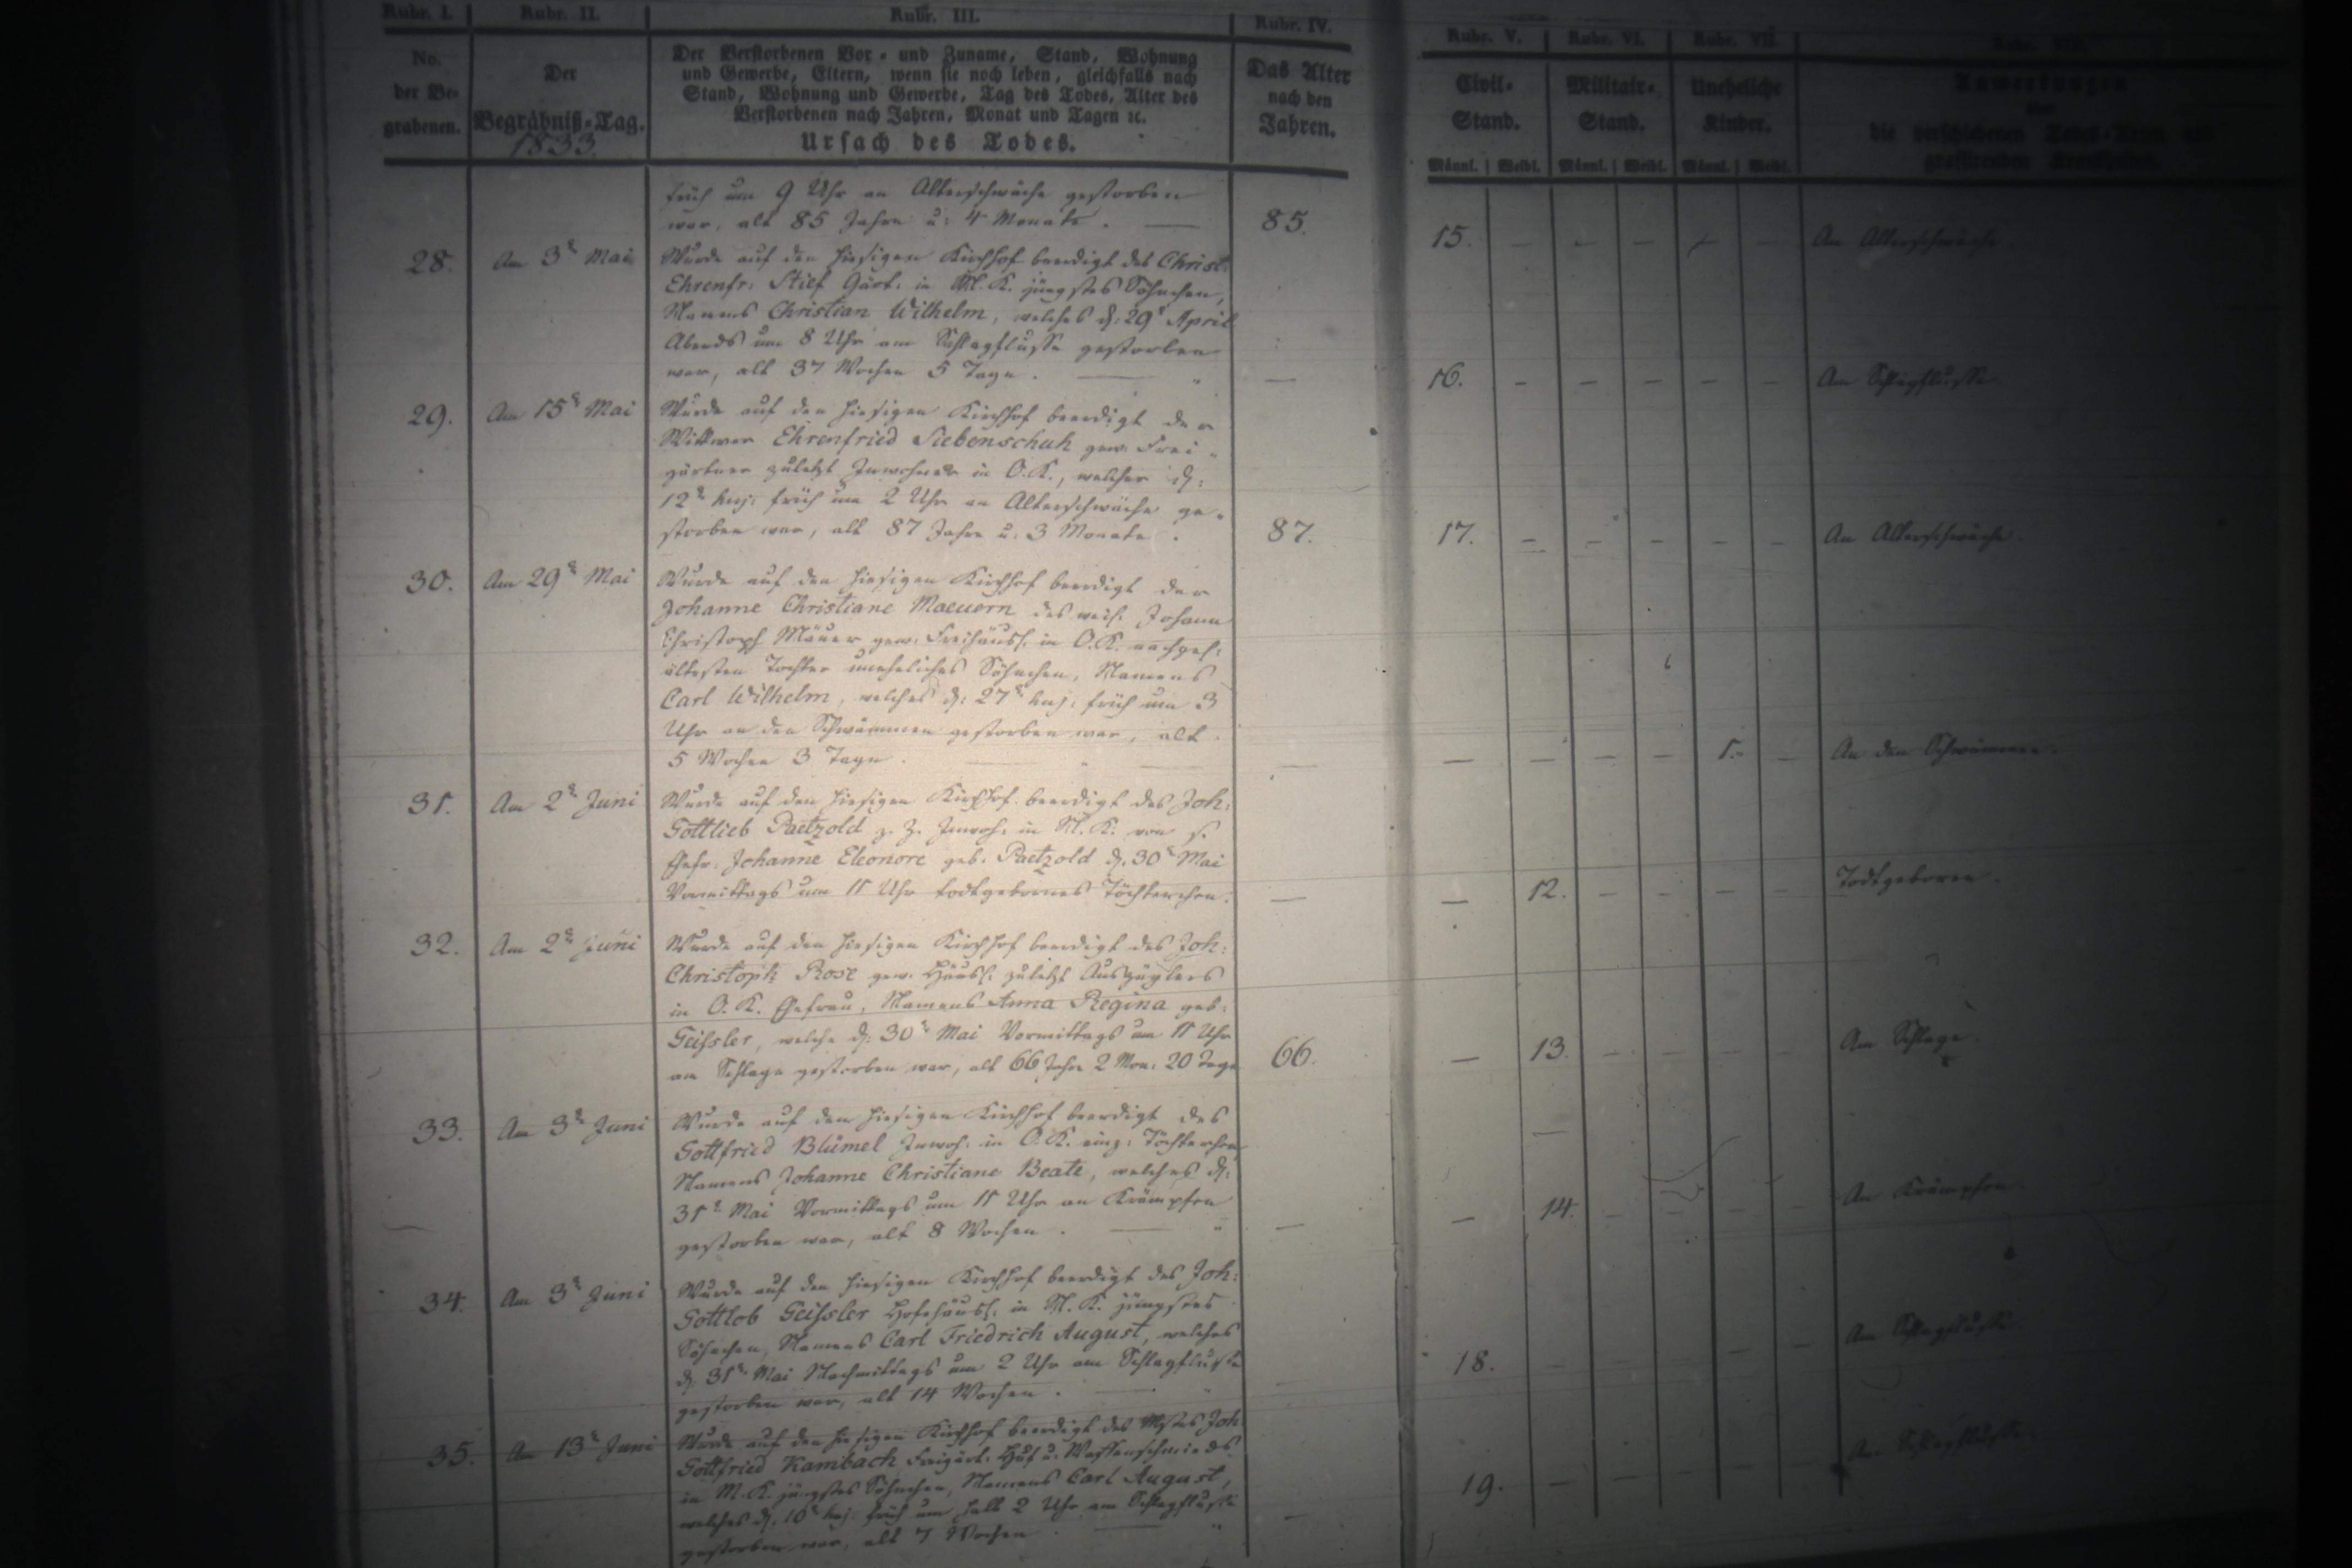 Rubr. I. Rubr. II. Rubr. III. Rubr. IV. Rubr. V. Rubr. VI. Rubr. VII.
No. der Be- grabenen.
Der Begräbniß-Tag.
1833.
Der Verstorbenen Vor- und Zuname, Stand, Wohnung
und Gewerbe, Eltern, wenn sie noch leben, gleichfalls nach
Stand, Wohnung und Gewerbe, Tag des Todes, Alter des
Verstorbenen nach Jahren, Monat und Tagen ꝛc.
Ursach des Todes.
Das Alter
nach den
Jahren.
Civil-
Stand.
Militair-
Stand.
Uneheliche
Kinder.
Anmerkungen
über
die verschiedenen Todes-Arten und
grassirenden Krankheiten.
Männl. Weibl. Männl. Weibl. Männl. Weibl.
früh um 9 Uhr an Altersschwäche gestorben
war, alt 85 Jahre u: 4 Monate. 85. 15. An Altersschwäche.
28. Am 3t Mai Wurde auf den hiesigen Kirchhof beerdigt des Christ:
Ehrenfr: Stief Gärt: in M. K. jüngstes Söhnchen,
Namens Christian Wilhelm, welches d: 29t April
Abends um 8 Uhr am Schlagflusse gestorben
war, alt 37 Wochen 5 Tage. — 16. Am Schlagflusse.
29. Am 15t Mai Wurde auf den hiesigen Kirchhof beerdigt der
Wittwer Ehrenfried Siebenschuh gew. Frei-
gärtner zuletzt Inwohner in O. K., welcher d:
12t huj: früh um 2 Uhr an Altersschwäche ge-
storben war, alt 87 Jahre u. 3 Monate. 87. 17. An Altersschwäche.
30. Am 29t Mai Wurde auf den hiesigen Kirchhof beerdigt der
Johanne Christiane Maeuern des weil: Johann
Christoph Mäuer gew. Freihäusl. in O. K. nachgel:
ältesten Tochter uneheliches Söhnchen, Namens
Carl Wilhelm, welches d: 27t huj: früh um 3
Uhr an den Schwämmen gestorben war, alt
5 Wochen 3 Tage. — 1. An den Schwämmen.
31. Am 2t Juni Wurde auf den hiesigen Kirchhof beerdigt des Joh:
Gottlieb Paetzold z. Z. Inwoh: in M. K. von s.
Ehefr. Johanne Eleonore geb. Paetzold d. 30t Mai
Vormittags um 11 Uhr todtgebornes Töchterchen. — 12. Todtgeboren.
32. Am 2t Juni Wurde auf den hiesigen Kirchhof beerdigt des Joh:
Christoph Rose gew. Häusl: zuletzt Auszüglers
in O. K. Ehefrau, Namens Anna Regina geb:
Geißler, welche d: 30t Mai Vormittags um 11 Uhr
am Schlage gestorben war, alt 66 Jahre 2 Mon: 20 Tage 66. 13. Am Schlage.
33. Am 3t Juni Wurde auf den hiesigen Kirchhof beerdigt des
Gottfried Blümel Inwoh: in O. K. einz: Töchterchen
Namens Johanne Christiane Beate, welches d:
31t Mai Vormittags um 11 Uhr an Krämpfen
gestorben war, alt 8 Wochen. — 14. An Krämpfen.
34. Am 3t Juni Wurde auf den hiesigen Kirchhof beerdigt des Joh:
Gottlob Geißler Hofehäusl: in M. K. jüngstes
Söhnchen, Namens Carl Friedrich August, welches
d. 31t Mai Nachmittags um 2 Uhr am Schlagflusse
gestorben war, alt 14 Wochen. — 18. Am Schlagflusse.
35. Am 13t Juni Wurde auf den hiesigen Kirchhof beerdigt des Mstrs Joh:
Gottfried Kambach Freigärt. Huf u. Waffenschmieds
in M. K. jüngstes Söhnchen, Namens Carl August,
welches d. 10t huj: früh um halb 2 Uhr am Schlagflusse
gestorben war, alt 7 Wochen — 19. Am Schlagflusse.